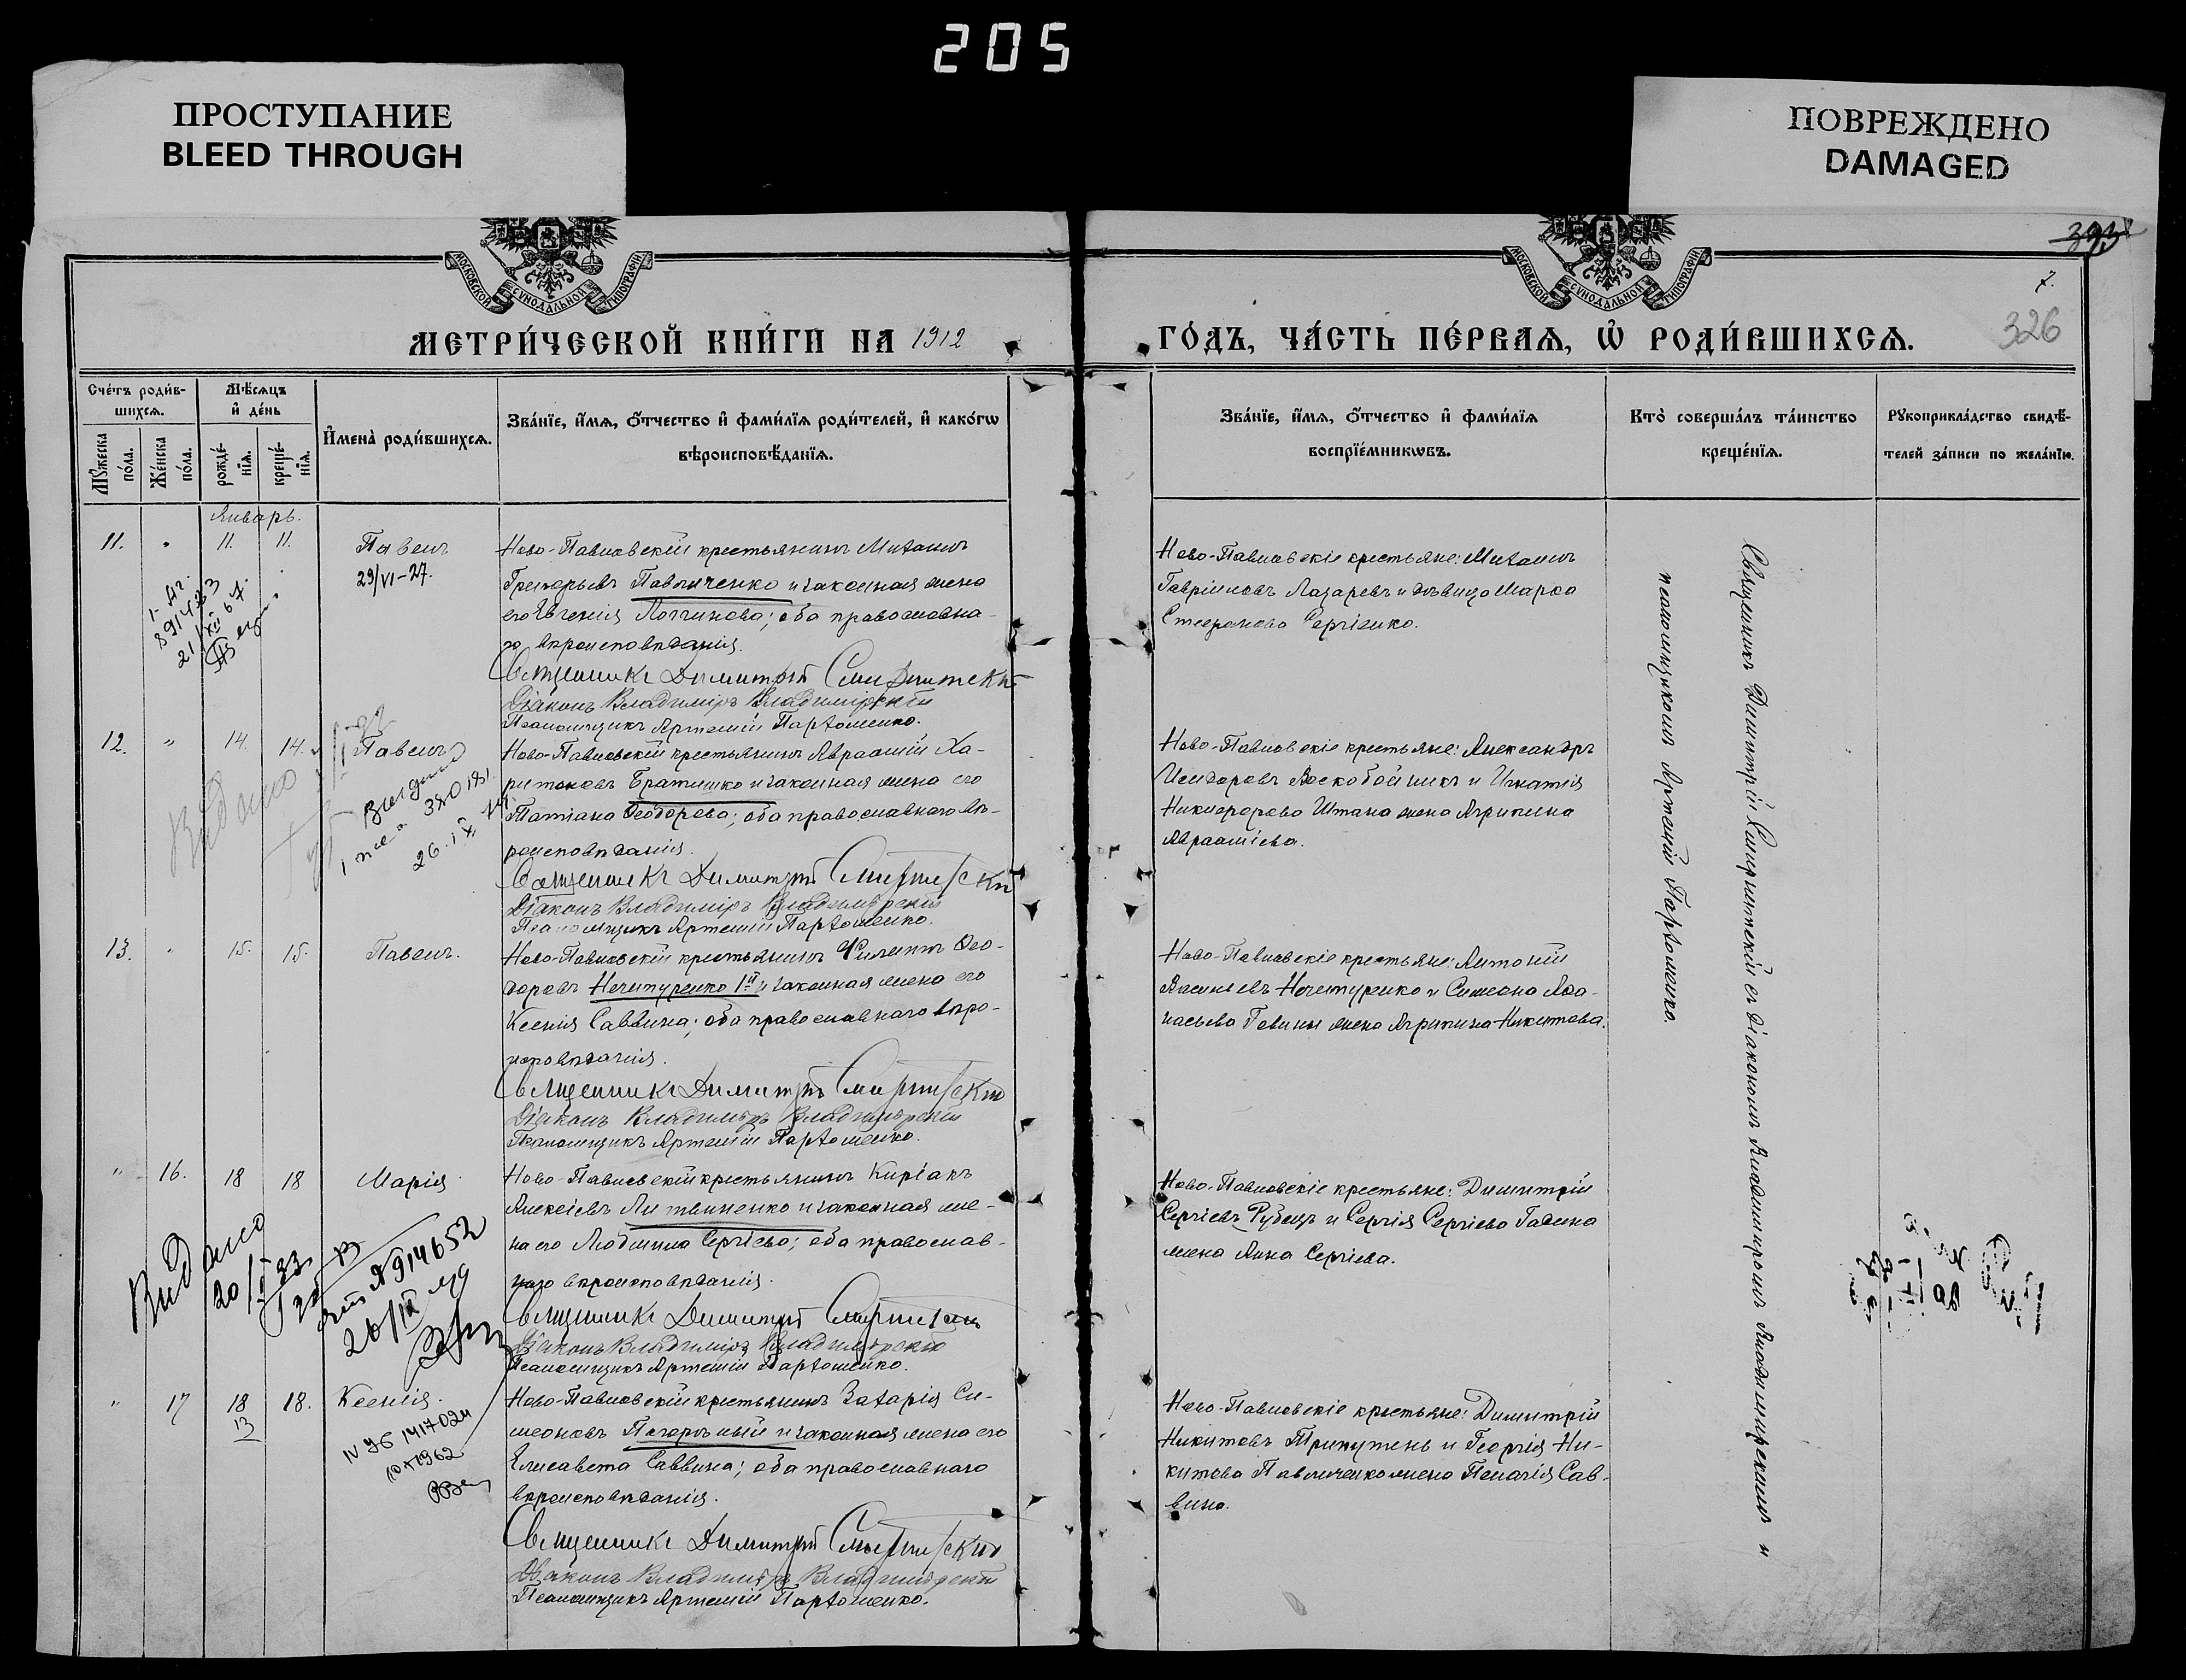 205
ПРОСТУПАНИЕ
BLEED THROUGH
ПОВРЕЖДЕНО
DAMAGED
МОСКОВСКОЙ СѴНОДАЛЬНОЙ ТИПОГРАФІИ
МОСКОВСКОЙ СѴНОДАЛЬНОЙ ТИПОГРАФІИ
7.
326
МЕТРИ́ЧЕСКОЙ КНИ́ГИ НА 1912
ГО́ДЪ, ЧА́СТЬ ПЕ́РВАѦ, Ѡ҆ РОДИ́ВШИХСѦ.
Сче́тъ роди́в-
шихсѧ.
Мѣ́сѧцъ
и҆ де́нь
И҆мена̀ роди́вшихсѧ.
Зва́нїе, и҆́мѧ, ѻ҆́тчество и҆ фами́лїѧ роди́телей, и҆ како́гѡ
вѣроисповѣ́данїѧ.
Мꙋ́жеска по́ла.
Же́нска по́ла.
рожде́-
нїѧ.
креще́-
нїѧ.
Зва́нїе, и҆́мѧ, ѻ҆́тчество и҆ фами́лїѧ
воспрїе́мникѡвъ.
Кто̀ соверша́лъ та́инство
креще́нїѧ.
Рꙋкоприкла́дство свидѣ́-
телей за́писи по жела́нїю.
Январь.
11. " 11. 11. Павелъ
29/VI-27.
Ново-Павловскій крестьянинъ Михаилъ
Григорьевъ Павличенко и законная жена
его Евгенія Логгинова; оба православна-
го вѣроисповѣданія.
Священникъ Димитрій Смирнитскій
Діаконъ Владиміръ Владимірскій
Псаломщикъ Артемій Пархоменко.
Ново-Павловскіе крестьяне: Михаилъ
Гавріиловъ Лазаревъ и дѣвица Марѳа
Стефанова Сергіенко.
12. " 14. 14. Павелъ
Ново-Павловскій крестьянинъ Авраамій Ха-
ритоновъ Братишко и законная жена его
Татіана Ѳеодорова; оба православнаго вѣ-
роисповѣданія.
Священникъ Димитрій Смирнитскій
Діаконъ Владиміръ Владимірскій
Псаломщикъ Артемій Пархоменко.
Ново-Павловскіе крестьяне: Александръ
Исидоровъ Воскобойникъ и Игнатія
Никифорова Штана жена Агрипина
Авраамiева.
13. " 15. 15. Павелъ.
Ново-Павловскій крестьянинъ Филиппъ Ѳео-
доровъ Нечипуренко 1й и законная жена его
Ксенія Саввина; оба православнаго вѣро-
исповѣданія.
Священникъ Димитрій Смирнитскій
Діаконъ Владиміръ Владимірскій
Псаломщикъ Артемій Пархоменко.
Ново-Павловскіе крестьяне: Антоній
Васильевъ Нечипуренко и Симеона Аѳа-
насьева Гевины жена Агрипина Никитова.
" 16. 18 18 Марія
Ново-Павловскій крестьянинъ Киріакъ
Алексіевъ Литвиненко и законная же-
на его Людмила Сергіева; оба православ-
наго вѣроисповѣданія.
Священникъ Димитрій Смирнитскій
Діаконъ Владиміръ Владимірскій
Псаломщикъ Артемій Пархоменко.
Видано
№ 914652
Ново-Павловскіе крестьяне: Димитрій
Сергіевъ Рубецъ и Сергія Сергіева Гадина
жена Анна Сергіева.
" 17 18 18. Ксенія.
13
Ново-Павловскій крестьянинъ Захарія Си-
меоновъ Погорѣлый и законная жена его
Елисавета Саввина; оба православнаго
вѣроисповѣданія.
Священникъ Димитрій Смирнитскій
Діаконъ Владиміръ Владимірскій
Псаломщикъ Артемій Пархоменко.
Ново-Павловскіе крестьяне: Димитрій
Никитовъ Трипутень и Георгія Ни-
китова Павличенко жена Пелагія Сав-
вина.
Священникъ Димитрій Смирнитскій съ діакономъ Владиміромъ Владимірскимъ и
псаломщикомъ Артеміемъ Пархоменко.